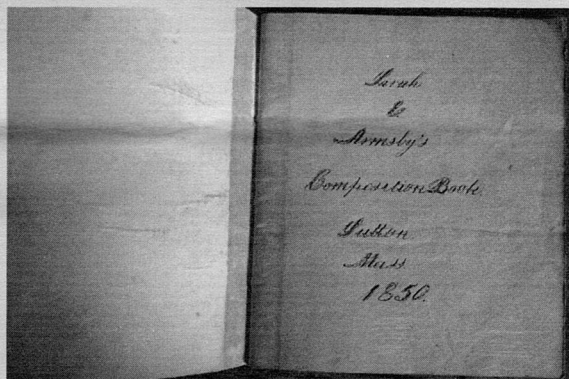 Sarah
E
Armsby's
Composition Book.
Sutton
Mass
1850.